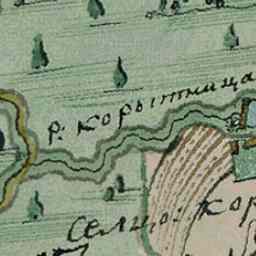 р: корытница
Селцо: кор